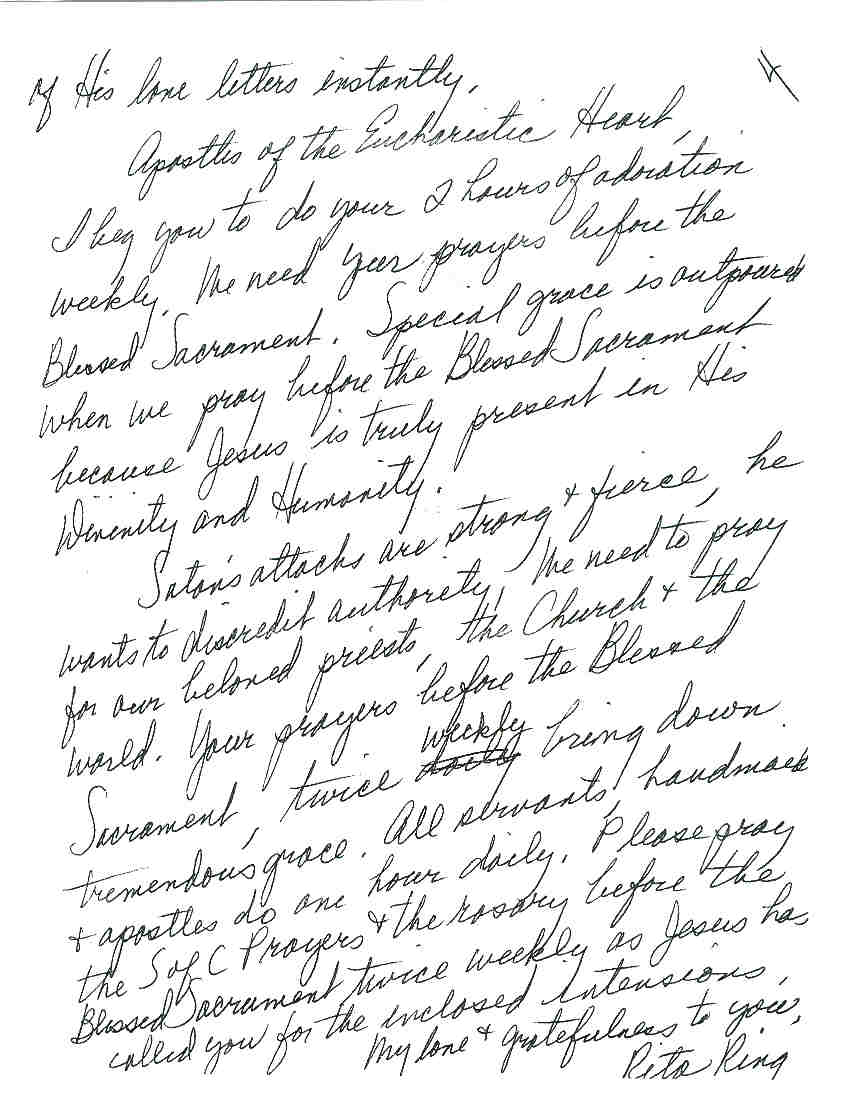 4
of His love letters instantly.
Apostles of the Eucharistic Heart,
I beg you to do your 2 hours of adoration
weekly. We need your prayers before the
Blessed Sacrament. Special grace is outpoured
when we pray before the Blessed Sacrament
because Jesus is truly present in His
Divinity and Humanity.
Satan's attacks are strong + fierce, he
wants to discredit authority. We need to pray
for our beloved priests, the Church + the
world. Your prayers before the Blessed
Sacrament, twice weekly bring down
tremendous grace. All servants, handmaids
+ apostles do one hour daily. Please pray
the S of C Prayers + the rosary before the
Blessed Sacrament twice weekly as Jesus has
called you for the enclosed intensions,
My love + gratefulness to you,
Rita Ring